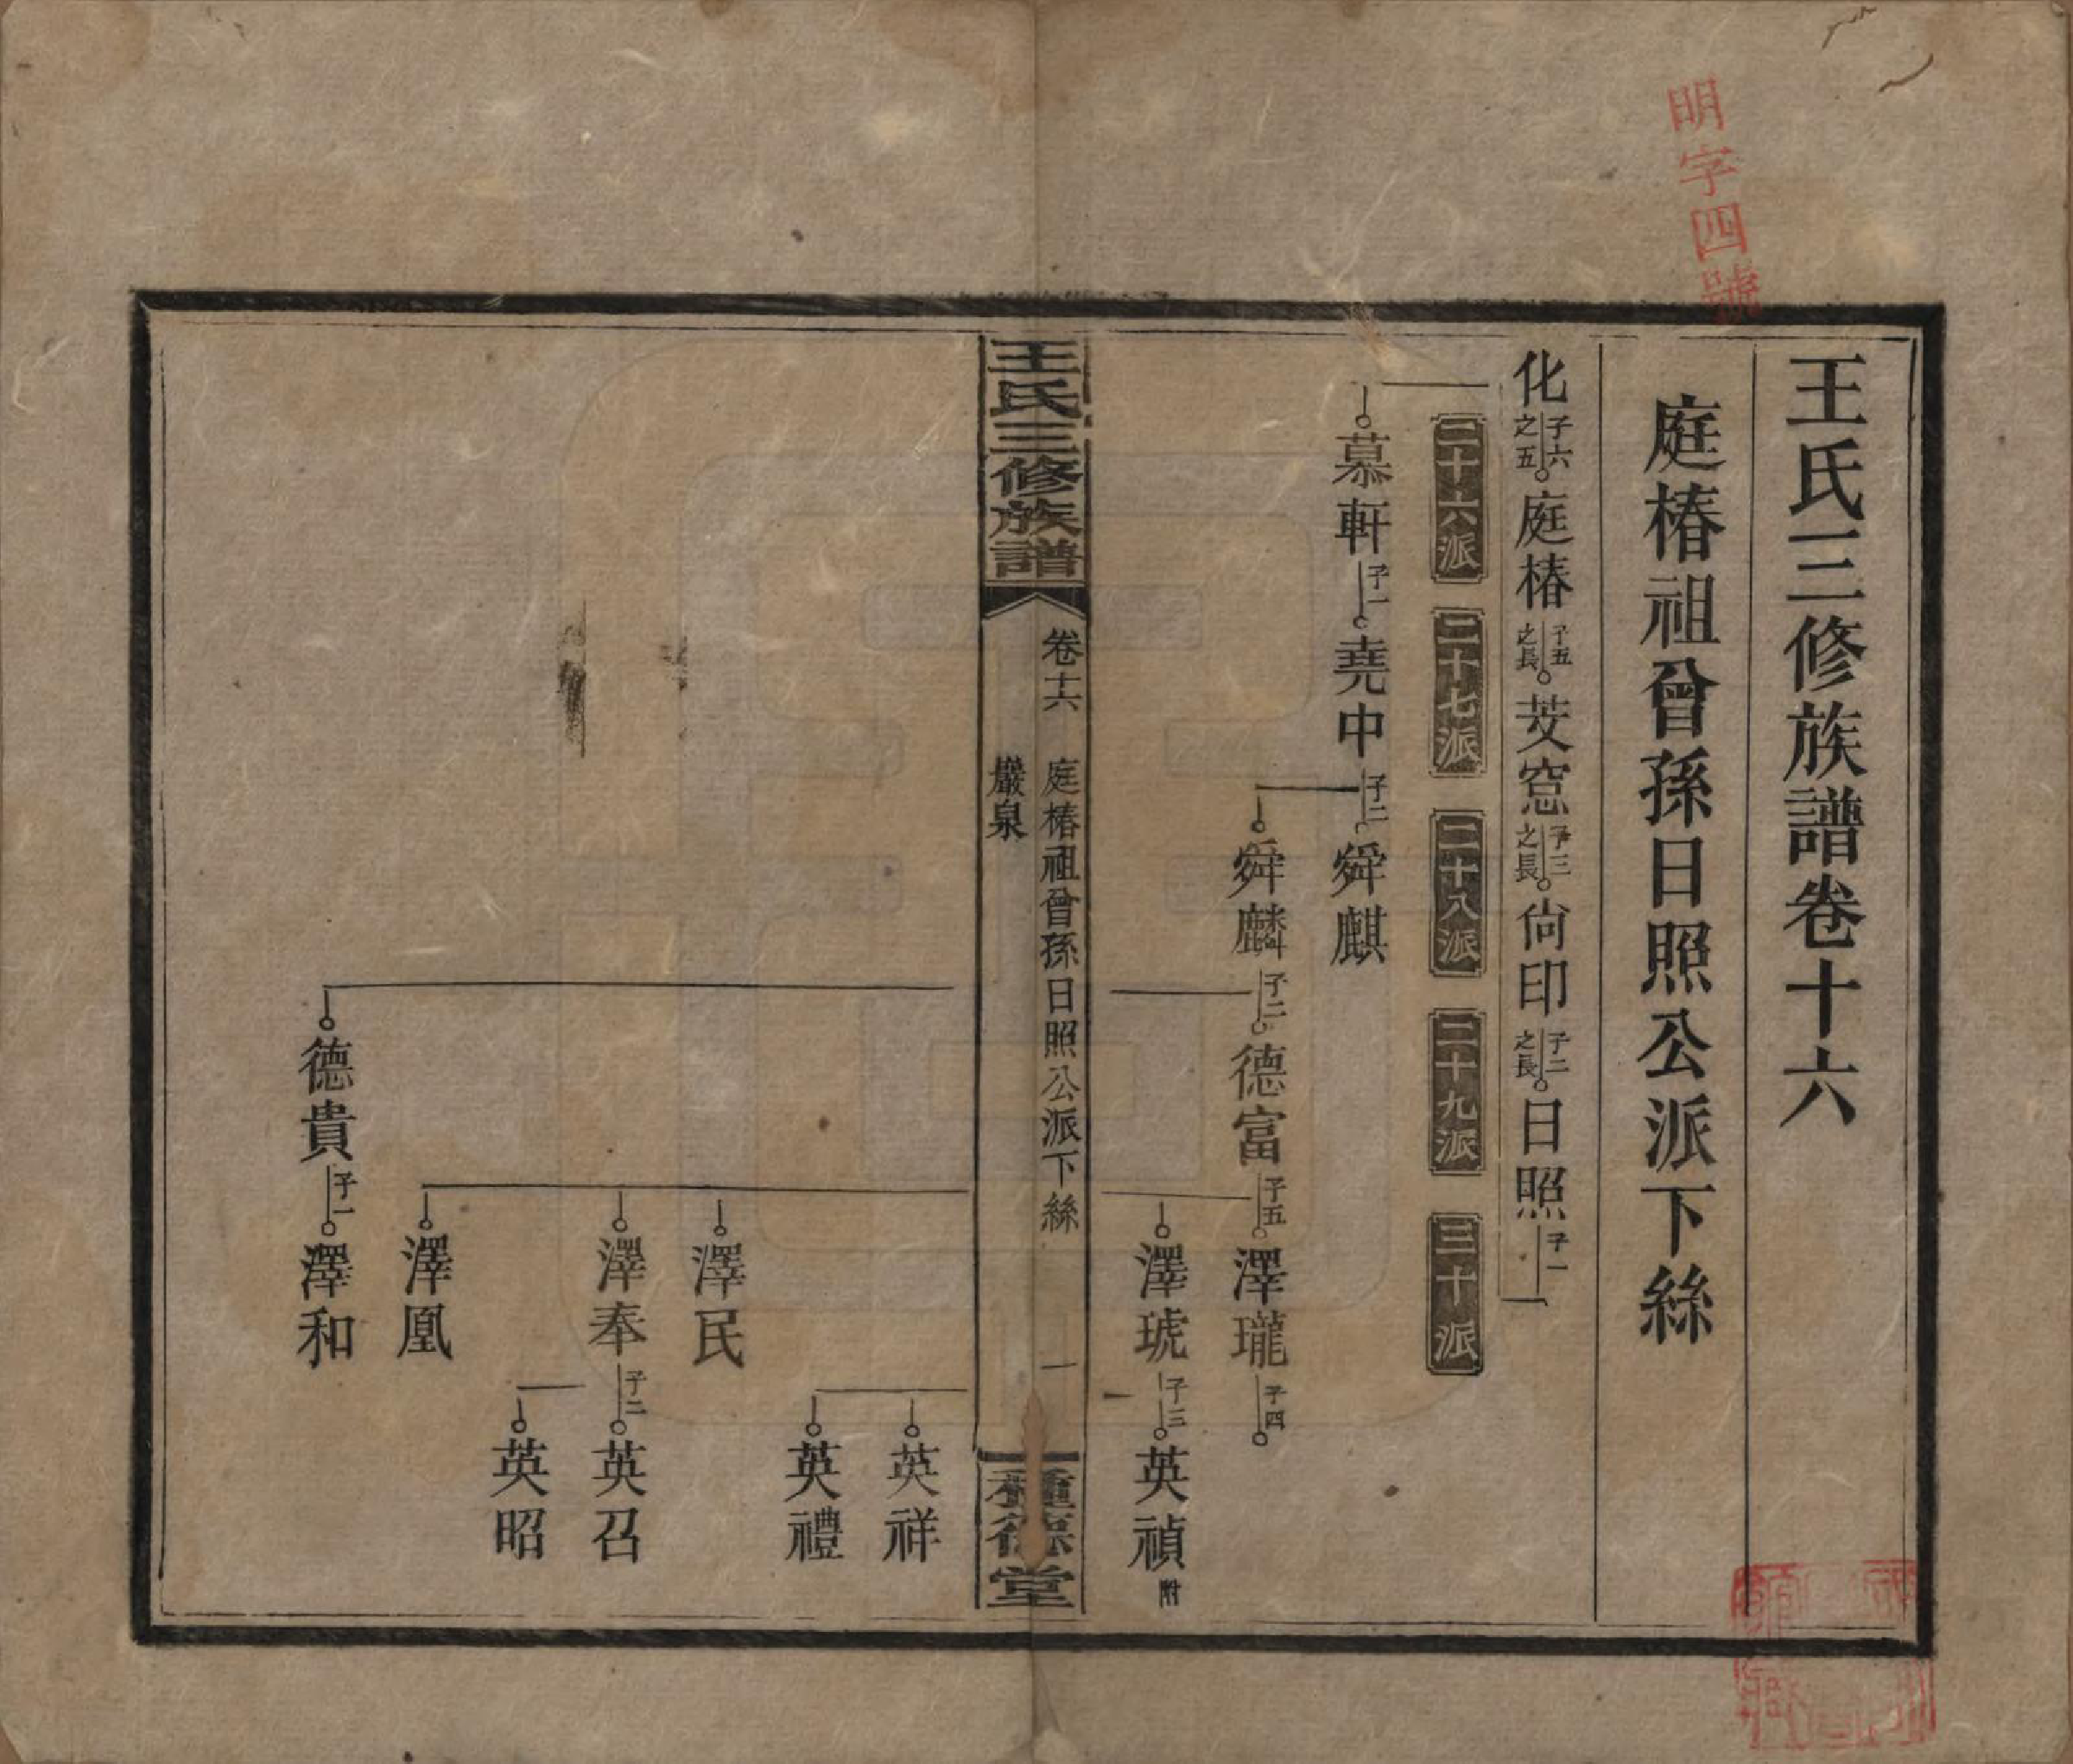 明字四號
王氏三修族譜卷十六
庭椿祖曾孫日照公派下絲
化 子六之五 庭椿 子五之長 芟窓 子三之長 尙印 子二之長 日照 子一
二十六派 二十七派 二十八派 二十九派 三十派
慕軒 子一 堯中 子二 舜麒
舜麟 子二 德富 子五 澤瓏 子四
澤琥 子三 英禎 附
王氏三修族譜 卷十六 庭椿祖曾孫日照公派下絲 一 種德堂
巖泉
英祥
英禮
澤民
澤奉 子二 英召
英昭
澤凰
德貴 子一 澤和